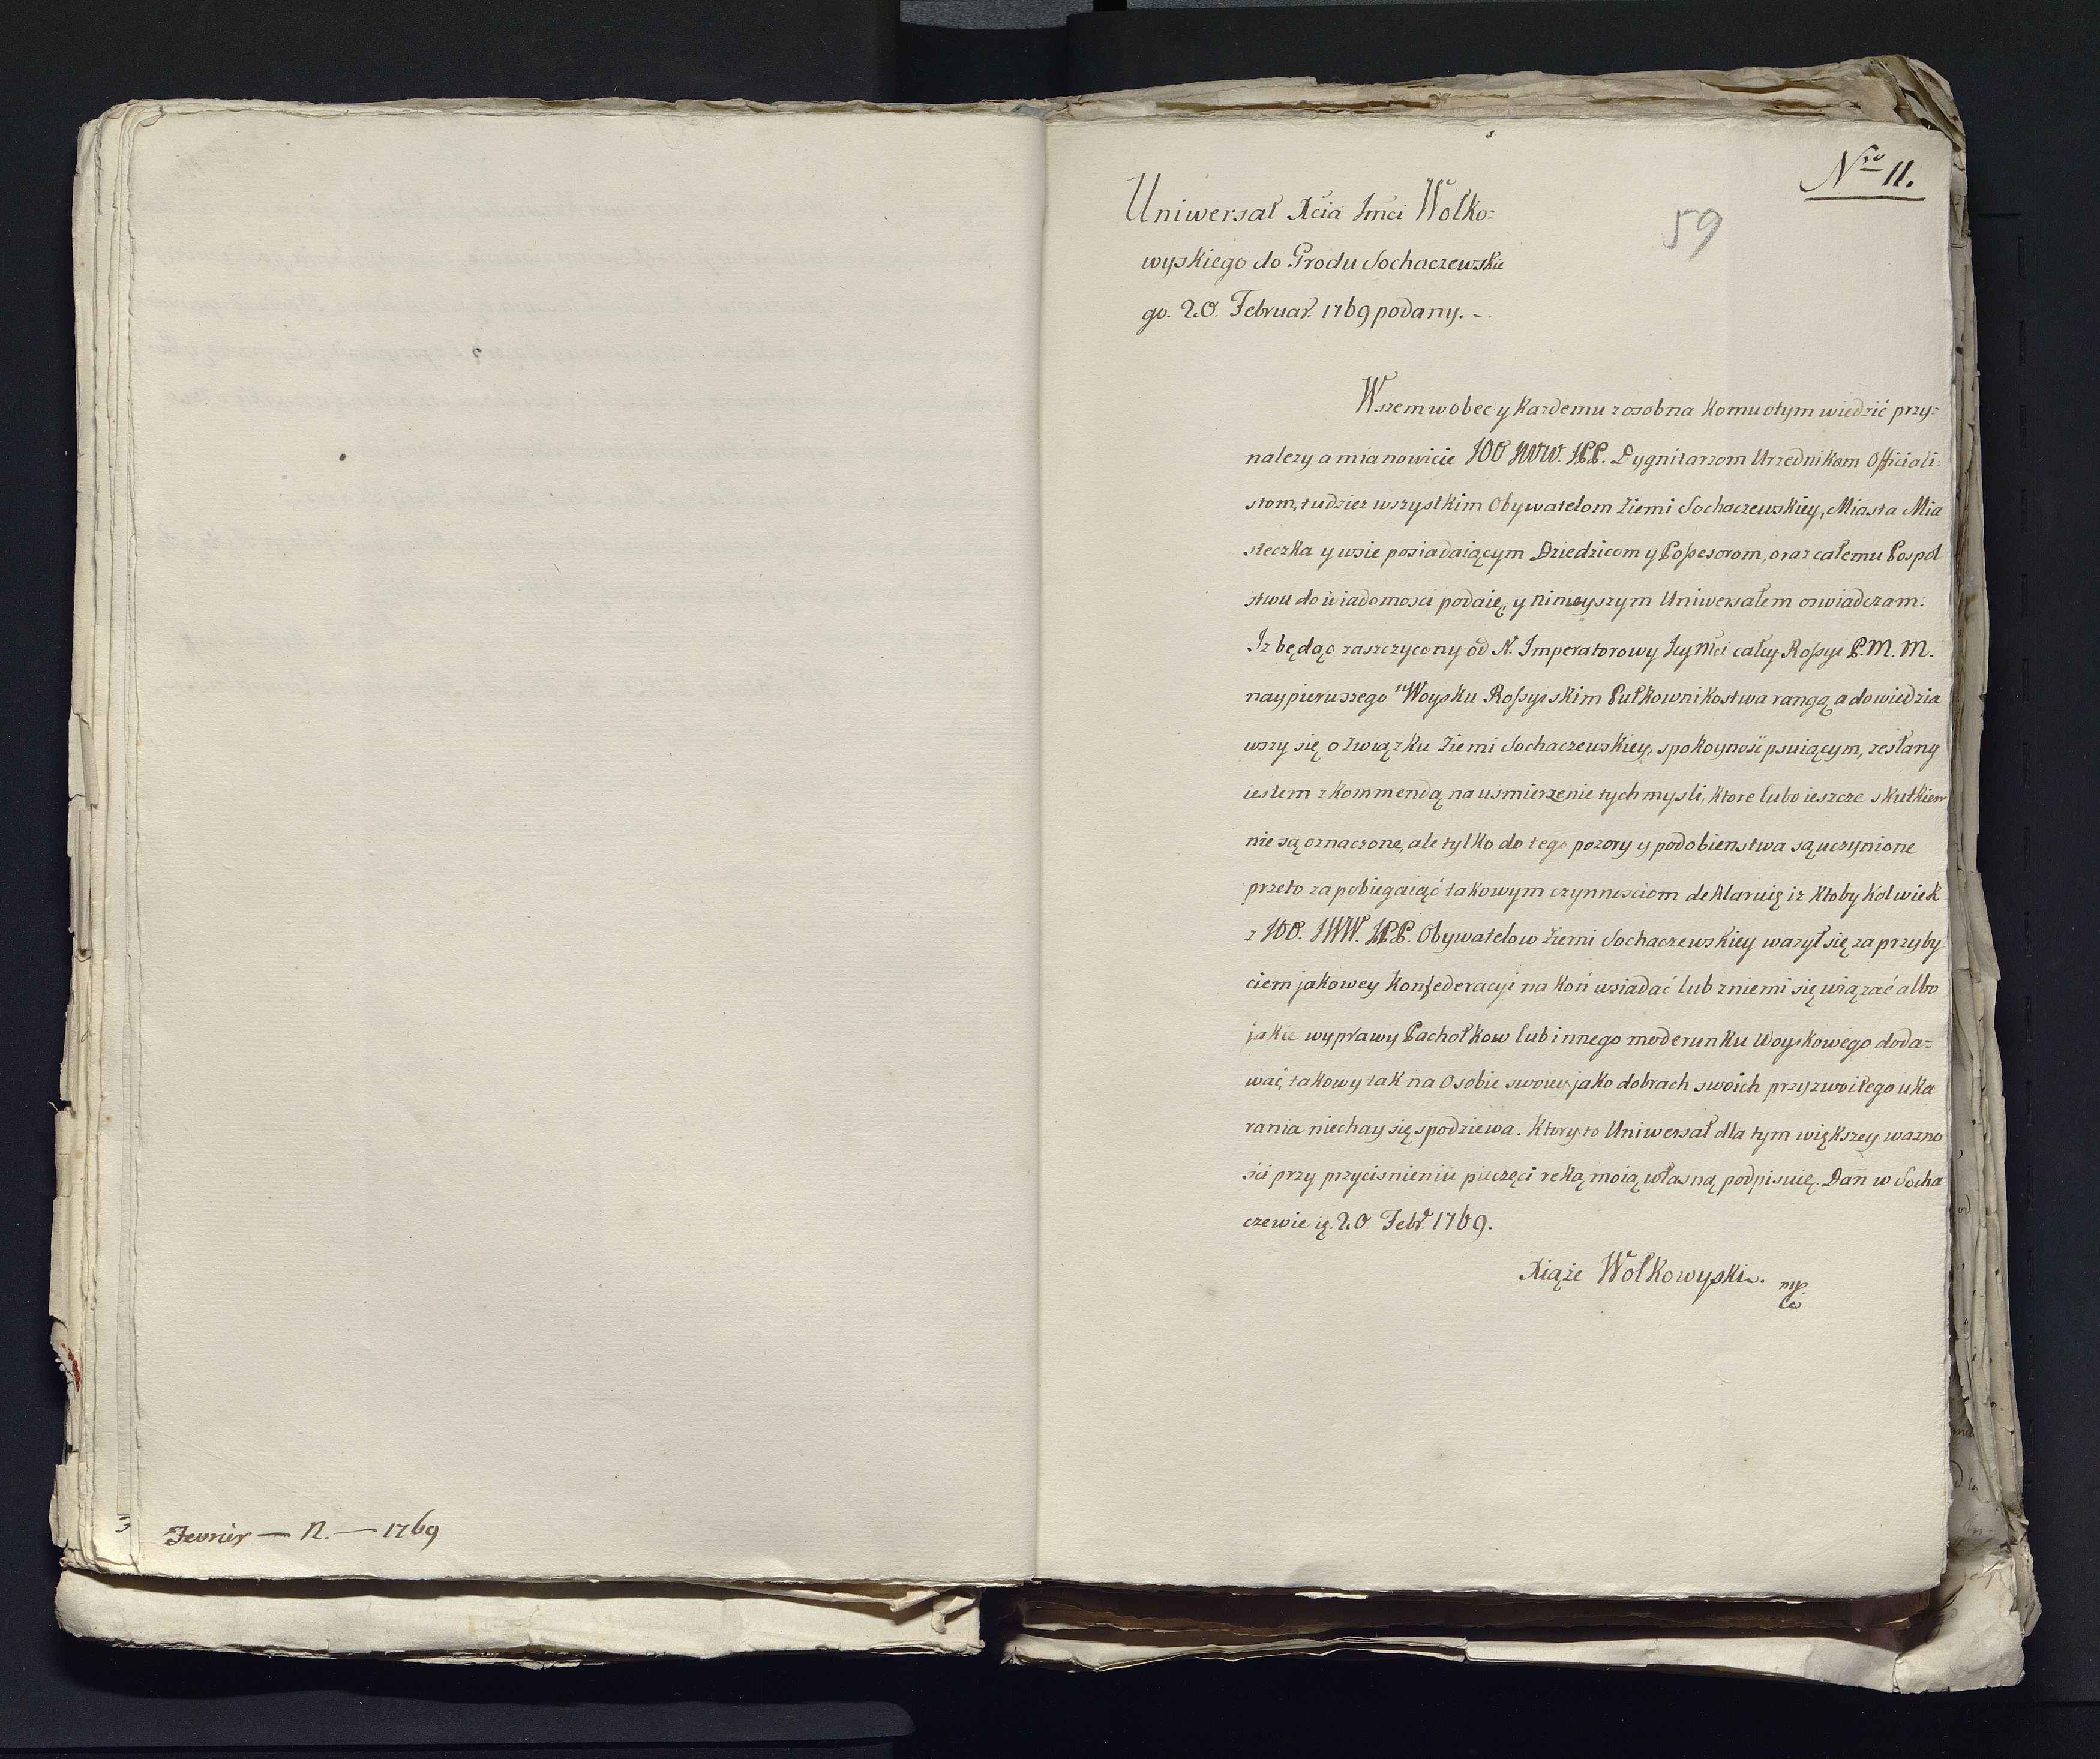 3
Fevrier — 12. — 1769
Nro 11.
59
Uniwersał Xcia Jmci Wołko=
wyskiego do Grodu Sochaczewskie
go. 20. Februar. 1769 podany. -.
Wszem wobec y kazdemu z osobna komu o tym wiedzić przy=
nalezy a mianowicie JOO JWW. JPP. Dygnitarzom Urzednikom Officiali=
stom, tudziez wszystkim Obywatelom Ziemi Sochaczewskiey, Miasta Mia
steczka y wsie posiadaiącym Dziedzicom y Possesorom, oraz całemu Pospol
stwu do wiadomosci podaię, y ninieyszym Uniwersałem oswiadczam.
Iz będąc zaszczycony od N. Imperatorowy Jey Mci całey Rossyi P. M. M.
naypierwszego w Woysku Rossyiskim Pułkownikostwa rangą, a dowiedzia
wszy się o związku Ziemi Sochaczewskiey, spokoyność psuiącym, zesłany
iestem z kommendą na usmierzenie tych mysli, ktore lubo ieszcze skutkiem
nie są oznaczone, ale tylko do tego pozory y podobienstwa są uczynione
przeto zapobiegaiąć takowym czynnosciom deklaruię iz ktoby kolwiek
z JOO. JWW. JPP. Obywatelow Ziemi Sochaczewskiey wazył się za przyby
ciem jakowey Konfederacyi na koń wsiadać lub z niemi się wiązać albo
jakie wyprawy Pachołkow lub innego moderunku Woyskowego doda=
wać, takowy tak na Osobie swoiey jako dobrach swoich przyzwoitego uka
rania niechay się spodziewa. Ktory to Uniwersał dla tym większey wazno
ści przy przycisnieniu pieczęci reką moią własną podpisuię. Dan w Socha
czewie 20 Febr. 1769.
Xiąże Wołkowyski.
mp